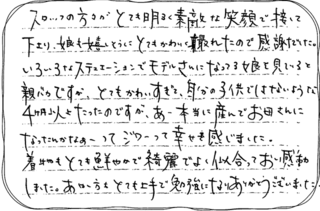 スタッフの方々がとても明るく素敵な笑顔で接して
下さり、娘も嬉しそうにとてもかわいく撮れたので感謝でした。
いろいろなシチュエーションでモデルさんになってる娘を見ていると
親バカですが、とてもかわいすぎて、自分の子供ではないような
4ヶ月の人だったのですが、あー本当に産んでお母さんに
なったんだなぁーってジワーって幸せを感じました。
着物もとても鮮やかで綺麗でよく似合っており感動
しました。あやし方もとても上手で勉強になりありがとうございました。